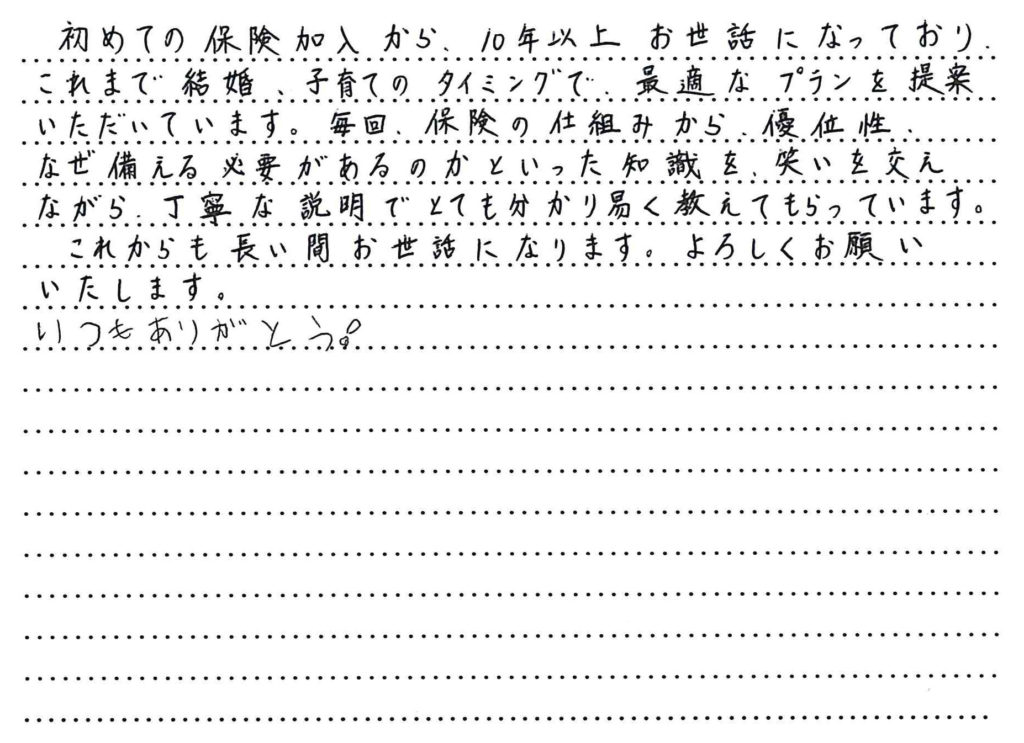 初めての保険加入から、10年以上お世話になっており、
これまで結婚、子育てのタイミングで、最適なプランを提案
いただいています。毎回、保険の仕組みから、優位性、
なぜ備える必要があるのかといった知識を、笑いを交え
ながら、丁寧な説明でとても分かり易く教えてもらっています。
これからも長い間お世話になります。よろしくお願い
いたします。
いつもありがとう。